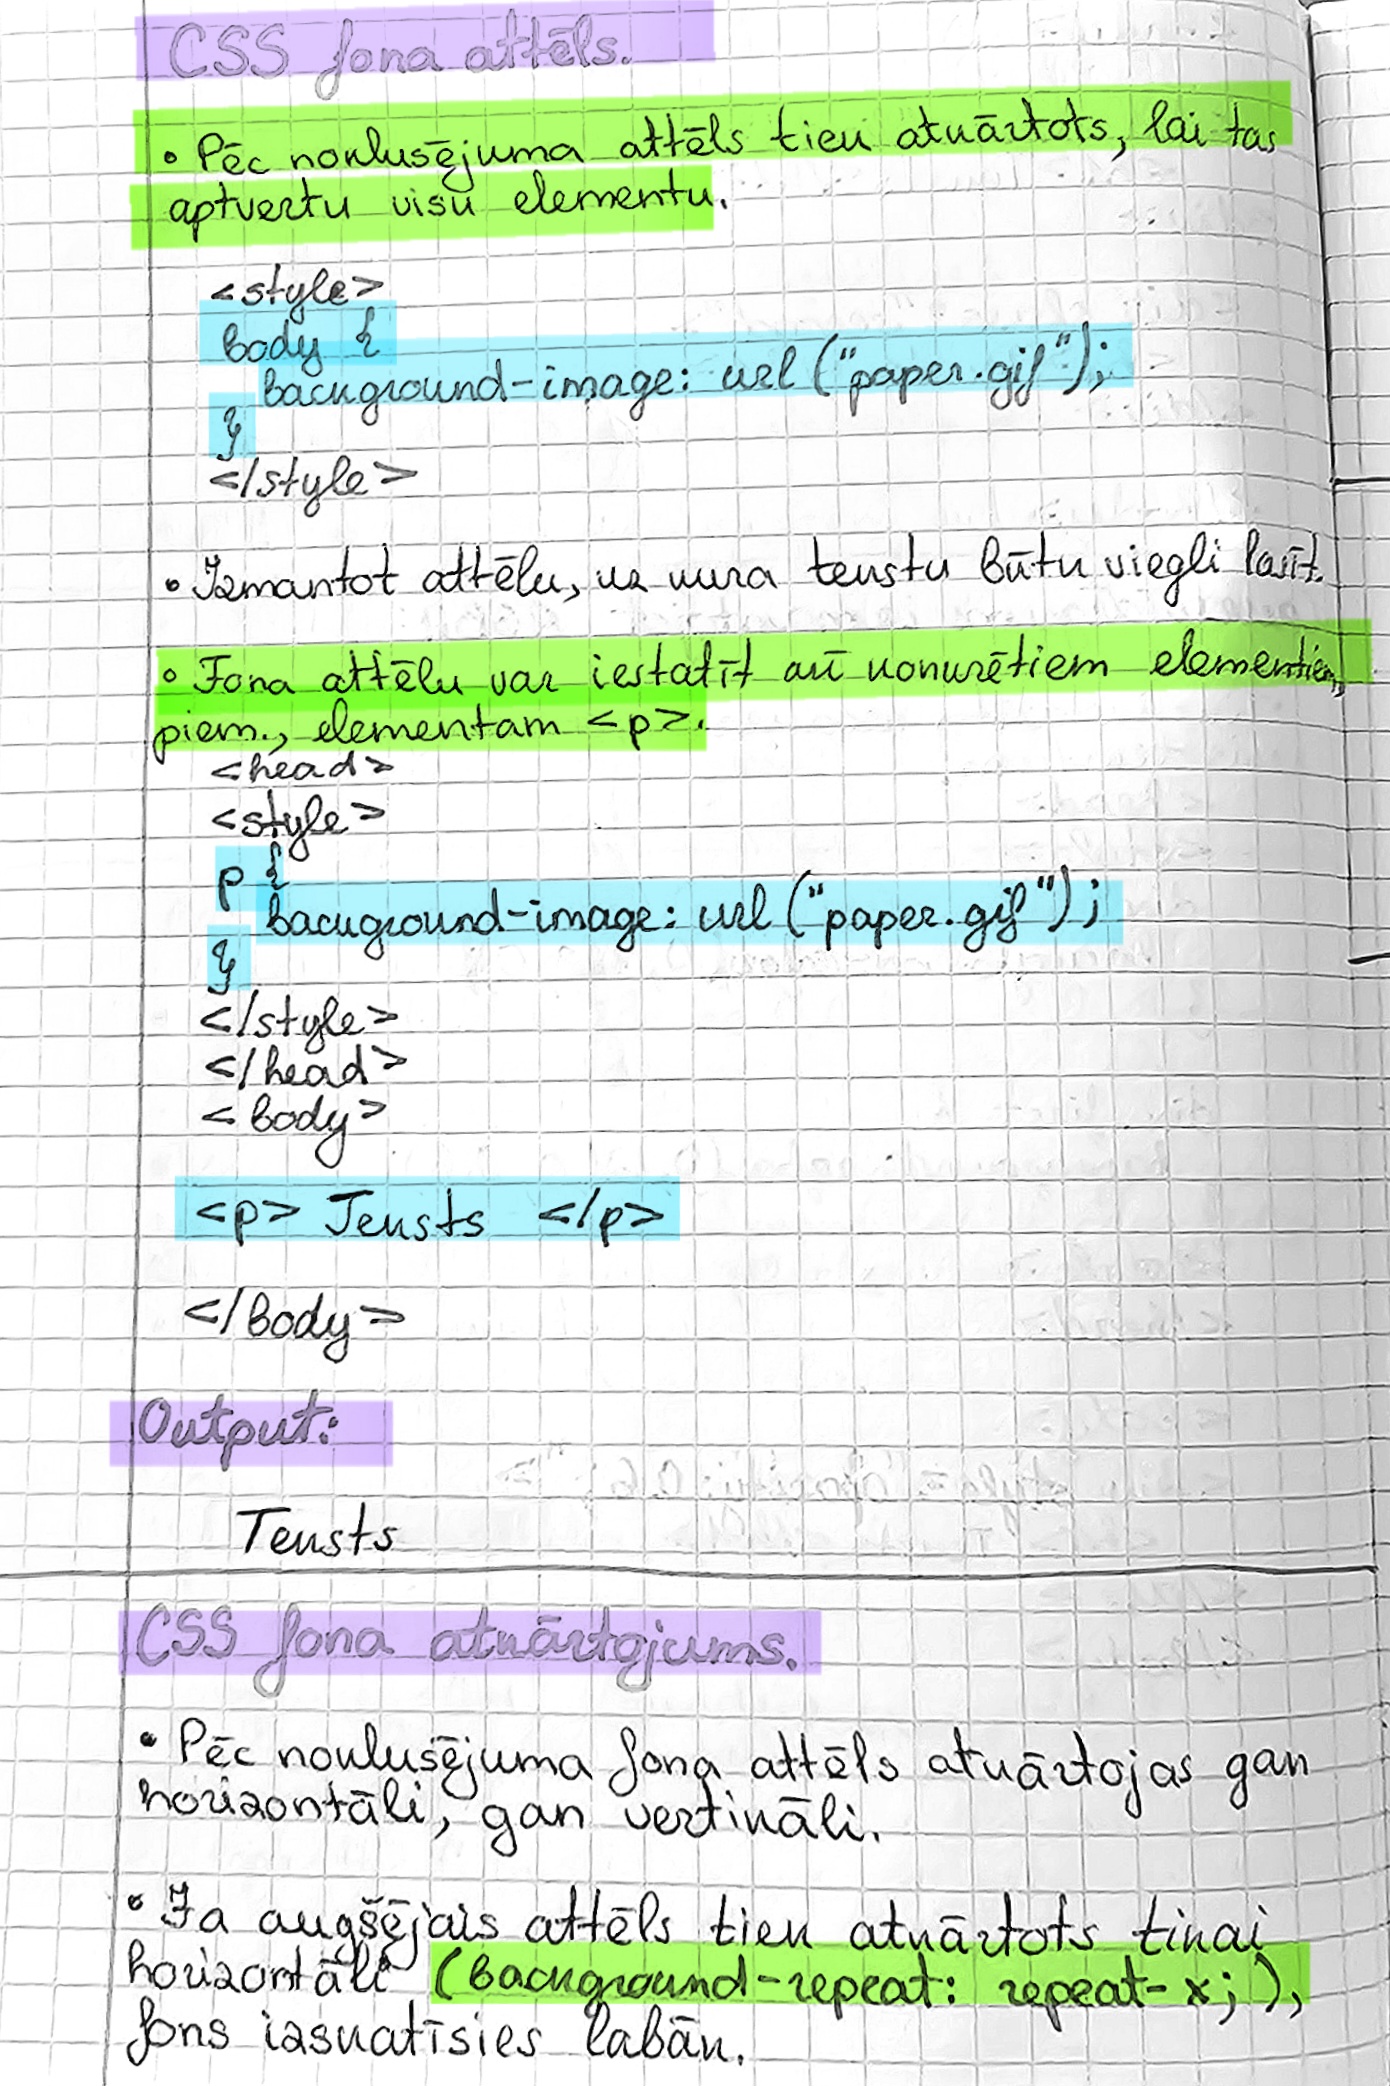 CSS fona attēls.
• Pēc noklusējuma attēls tiek atkārtots, lai tas
aptvertu visu elementu.
<style>
body {
background-image: url ("paper.gif");
}
</style>
• Izmantot attēlu, uz kura tekstu būtu viegli lasīt.
• Fona attēlu var iestatīt arī konkrētiem elementiem,
piem., elementam <p>.
<head>
<style>
p {
background-image: url ("paper.gif");
}
</style>
</head>
<body>
<p> Teksts </p>
</body>
Output:
Teksts
CSS fona atkārtojums.
• Pēc noklusējuma fona attēls atkārtojas gan
horizontāli, gan vertikāli.
• Ja augšējais attēls tiek atkārtots tikai
horizontāli (background-repeat: repeat-x;),
fons izskatīsies labāk.